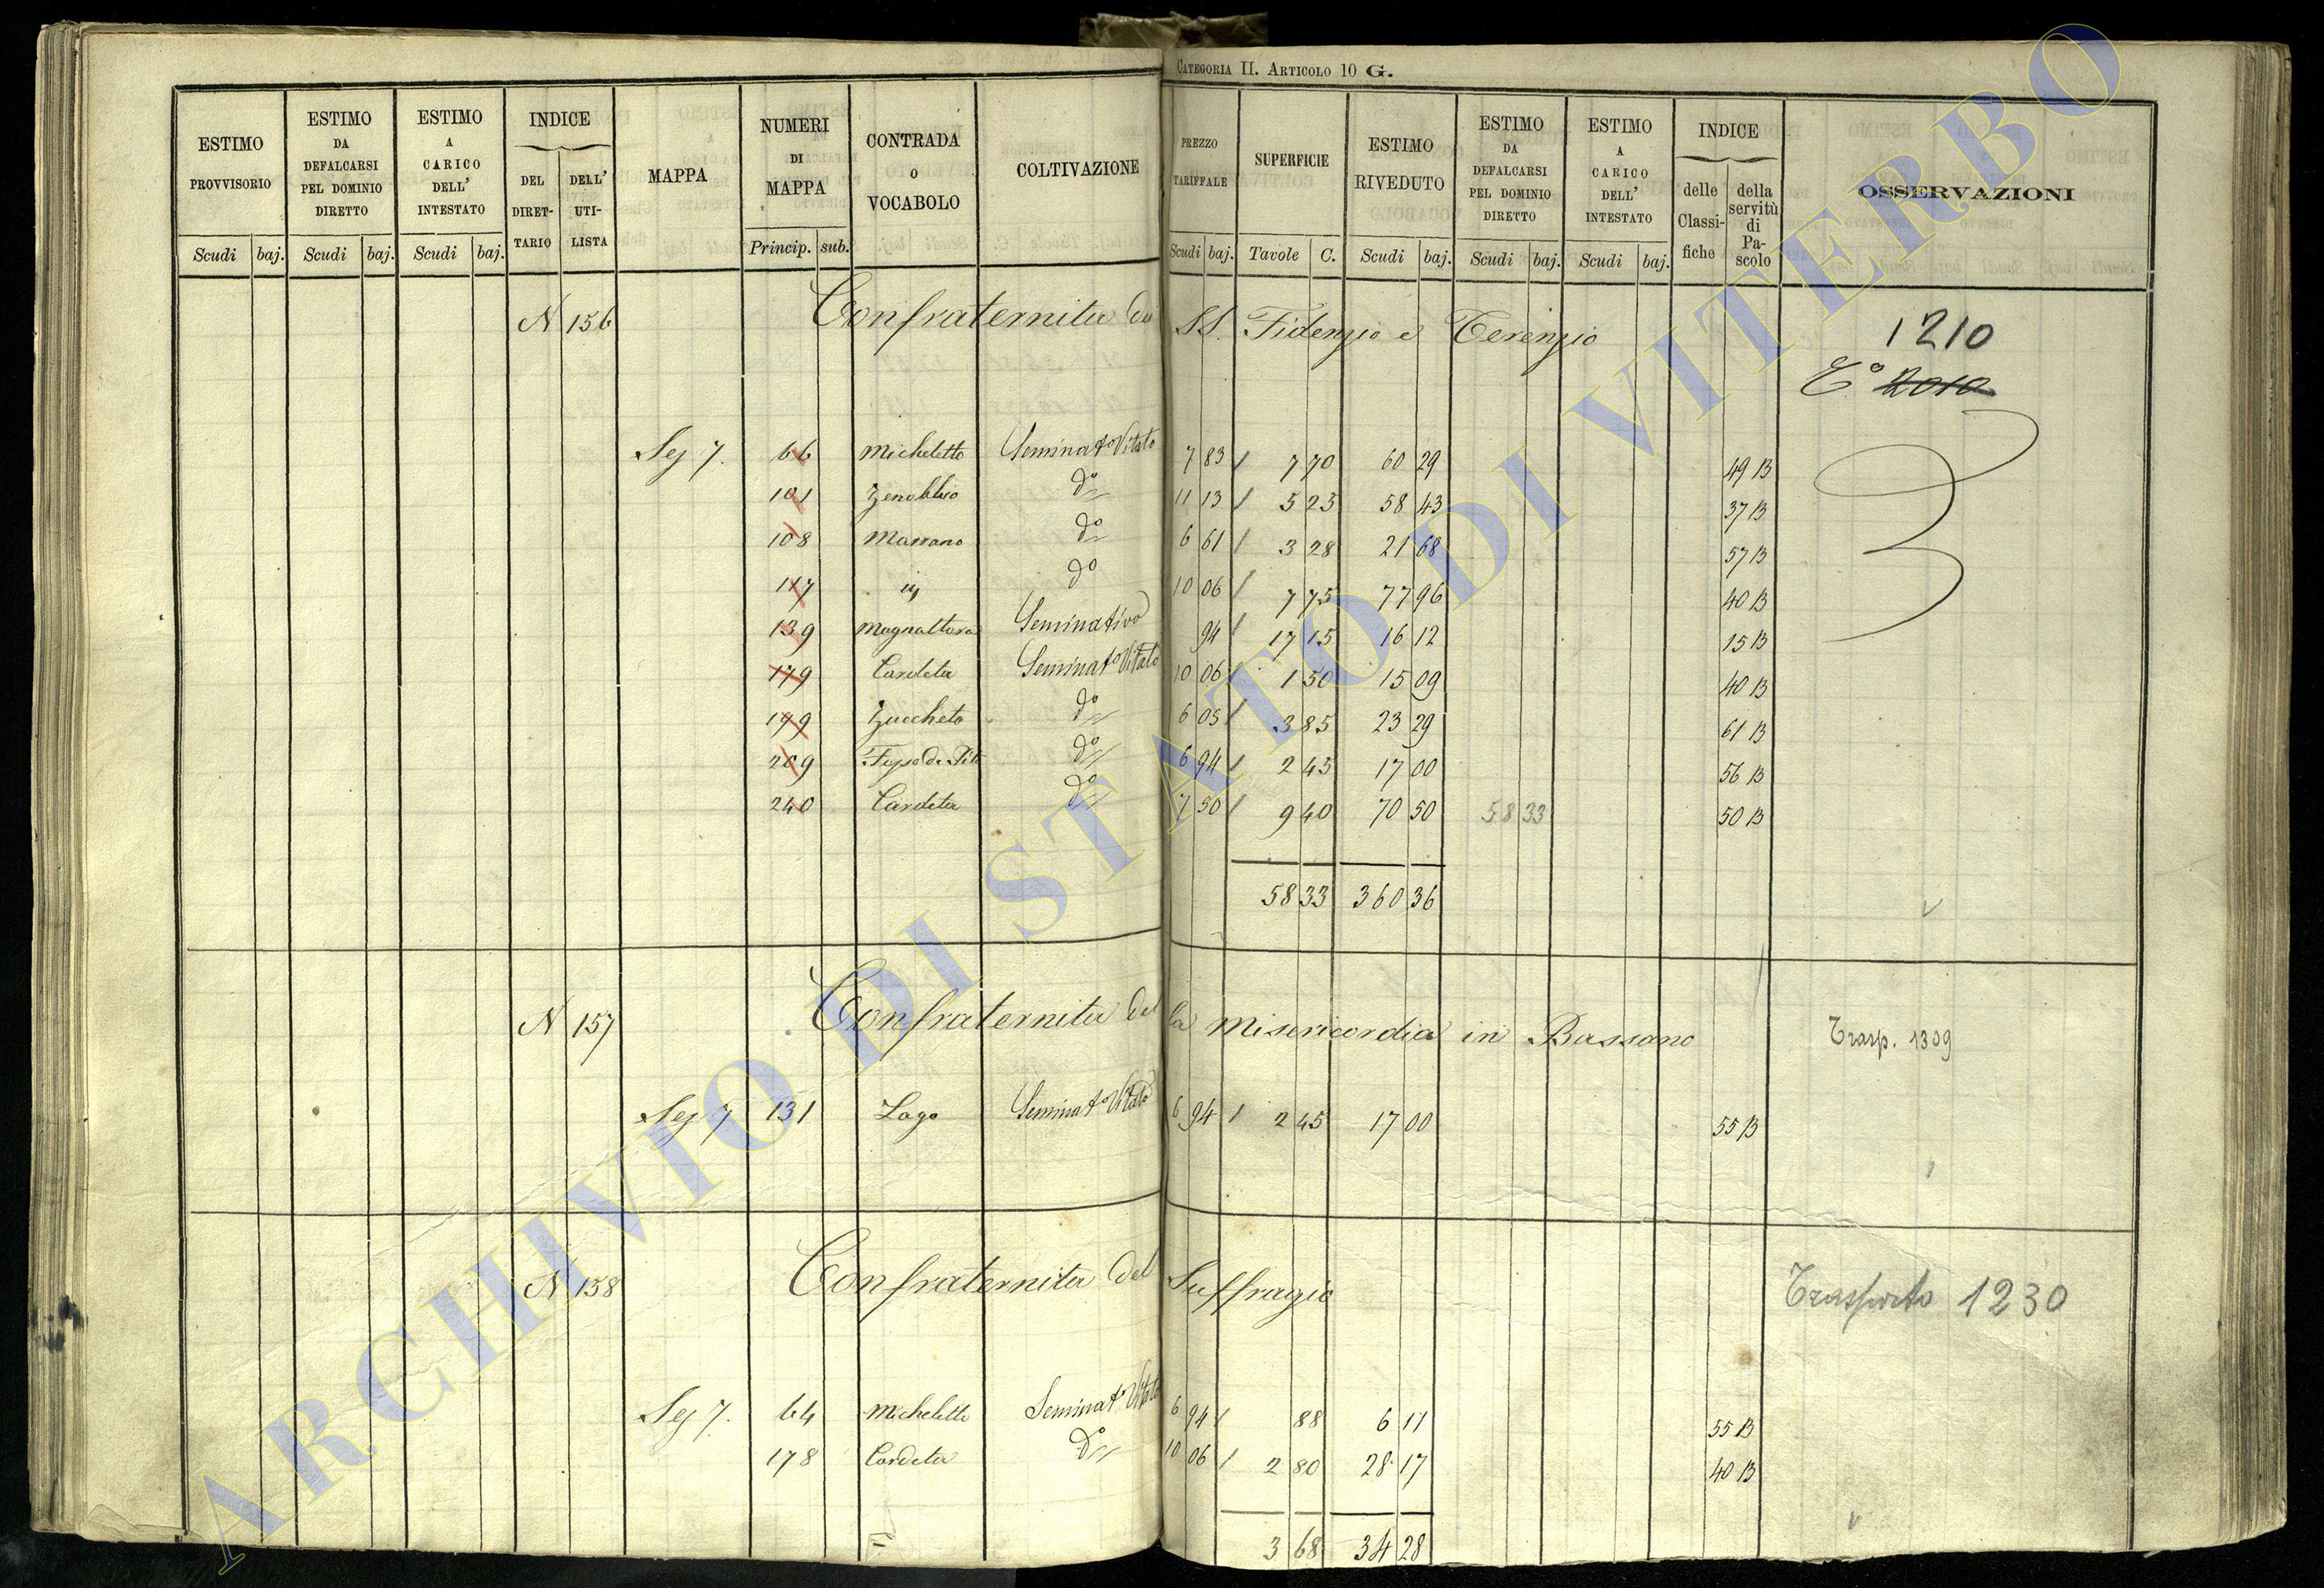 CATEGORIA II. ARTICOLO 10 G.
ESTIMO PROVVISORIO | ESTIMO DA DEFALCARSI PEL DOMINIO DIRETTO | ESTIMO A CARICO DELL' INTESTATO | INDICE | MAPPA | NUMERI DI MAPPA | CONTRADA O VOCABOLO | COLTIVAZIONE | PREZZO TARIFFALE | SUPERFICIE | ESTIMO RIVEDUTO | ESTIMO DA DEFALCARSI PEL DOMINIO DIRETTO | ESTIMO A CARICO DELL' INTESTATO | INDICE | OSSERVAZIONI
DEL DIRETTARIO | DELL' UTILISTA | delle Classifiche | della servitù di Pascolo
Scudi | baj. | Scudi | baj. | Scudi | baj. | Princip. | sub. | Scudi | baj. | Tavole | C. | Scudi | baj. | Scudi | baj. | Scudi | baj.
N 156 Confraternita di SS. Fidenzio e Terenzio 1210
T.° 2010
Sez 7. 66 Micheletto Seminat° Vitato 7 83 / 7 70 60 29 49 B
101 Zenobbio d° 11 13 / 5 25 58 43 37 B
108 Marrano d° 6 61 / 3 28 21 68 57 B
117 d° 10 06 / 7 75 77 96 40 B
139 Magnattora Seminativo 94 / 17 15 16 12 15 B
179 Cardeta Seminat° Vitato 10 06 / 1 50 15 09 40 B
199 Zuccheto d° 6 05 / 3 85 23 29 61 B
209 d° 6 94 / 2 45 17 00 56 B
240 Cardeta d° 7 50 / 9 40 70 50 58 33 50 B
58 33 360 36
N 157 Confraternita della Misericordia in Bassano Trasp. 1309
Sez 7 131 Lago Seminat° Vitato 6 94 / 2 45 17 00 55 B
N 158 Confraternita del Suffragio Trasporto 1230
Sez 7. 64 Micheletto Seminat° Vitato 6 94 / 88 6 11 55 B
178 Cardeta d° 10 06 / 2 80 28 17 40 B
3 68 34 28
ARCHIVIO DI STATO DI VITERBO